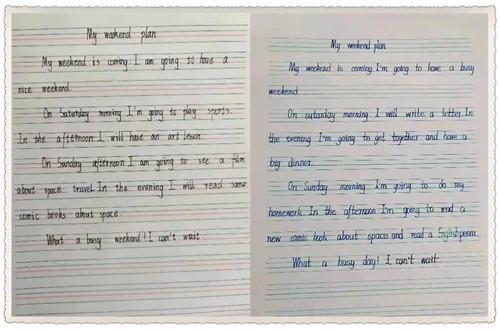 My weekend plan
My weekend is coming. I am going so have a
nice weekend.
On Saturday morning I'm going to play sports.
In the afternoon I will have an art lesson
On Sunday afternoon I am going to see a film
about space travel. In the evening I will read some
comic books about space.
What a busy weekend! I can't wait.
My weekend plan
My weekend is coming. I'm going to have a busy
weekend.
On suturday morning I will write a letter. In
the evening I'm going to get together and have a
big dinner.
On Sunday morning I'm going to do my
homework. In the afternoon I'm going to read a
new comic book about space and read a English poem.
What a busy day! I can't wait.